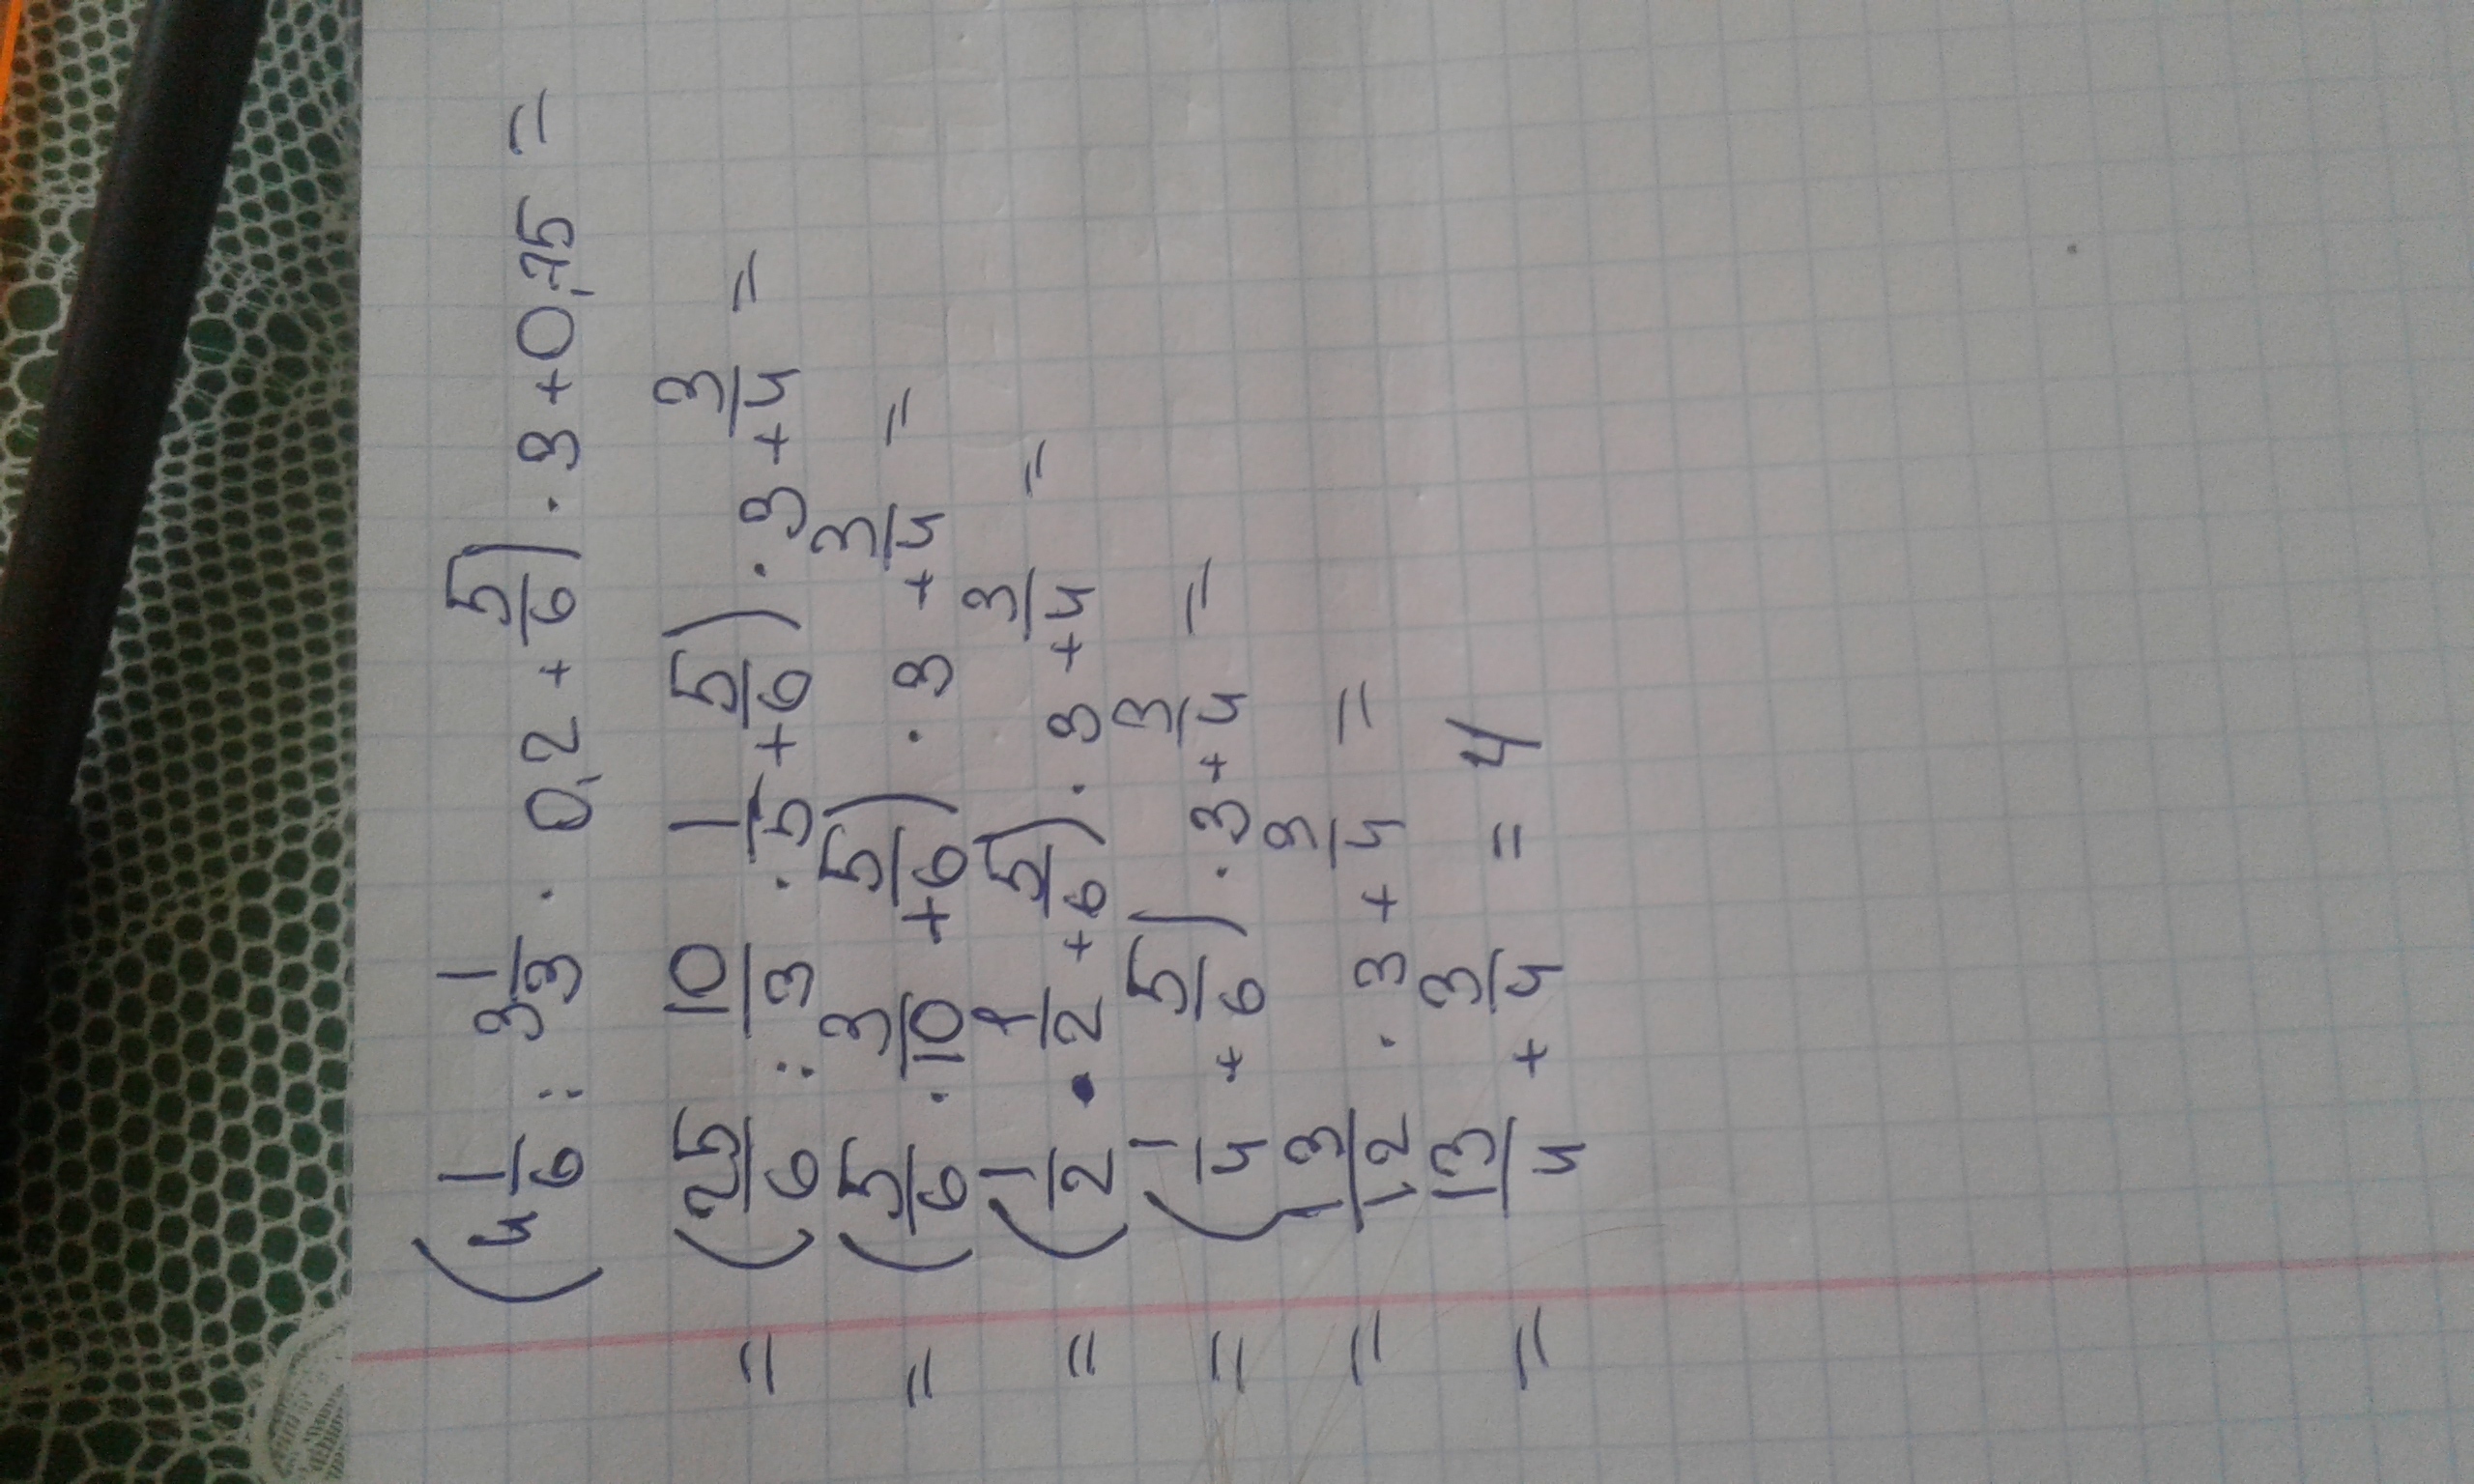 (4 1/6 : 3 1/3 · 0,2 + 5/6) · 3 + 0,75 =
= (25/6 : 10/3 · 1/5 + 5/6) · 3 + 3/4 =
= (5/6 · 3/10 + 5/6) · 3 + 3/4 =
= (1/2 · 1/2 + 5/6) · 3 + 3/4 =
= (1/4 + 5/6) · 3 + 3/4 =
= 13/12 · 3 + 3/4 =
= 13/4 + 3/4 = 4